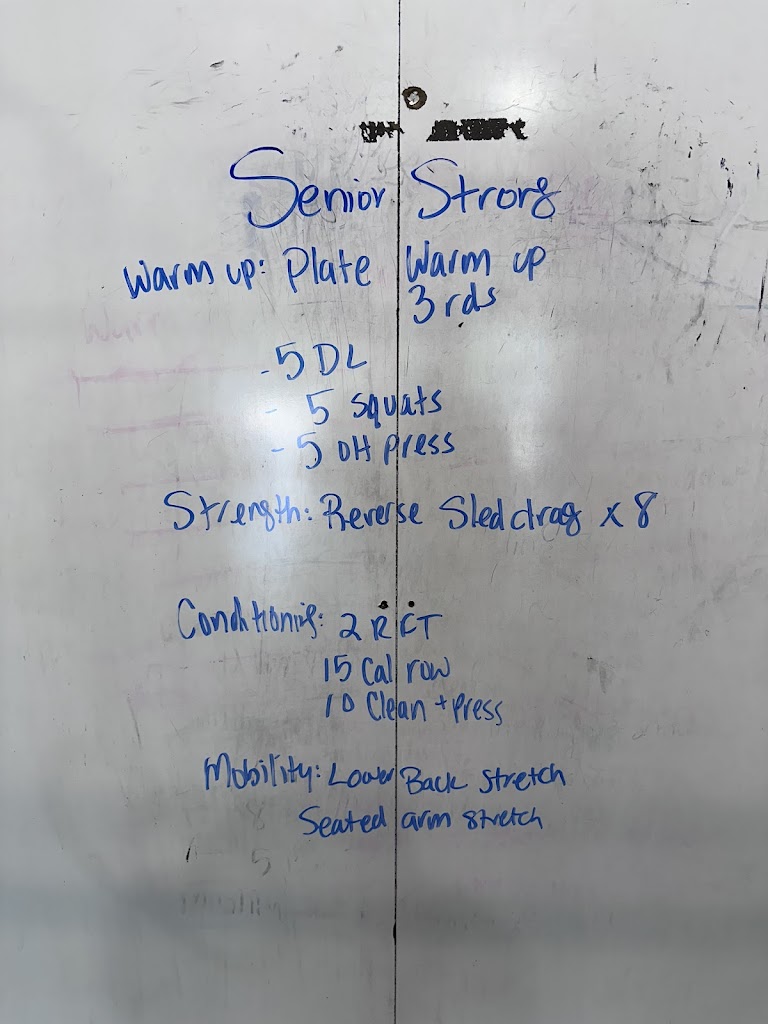 Senior Strong
Warm up: Plate Warm up
3 rds
- 5 DL
- 5 squats
- 5 OH press
Strength: Reverse Sled drag x 8
Conditioning: 2 RFT
15 Cal row
10 Clean + Press
Mobility: Lower Back Stretch
Seated arm stretch